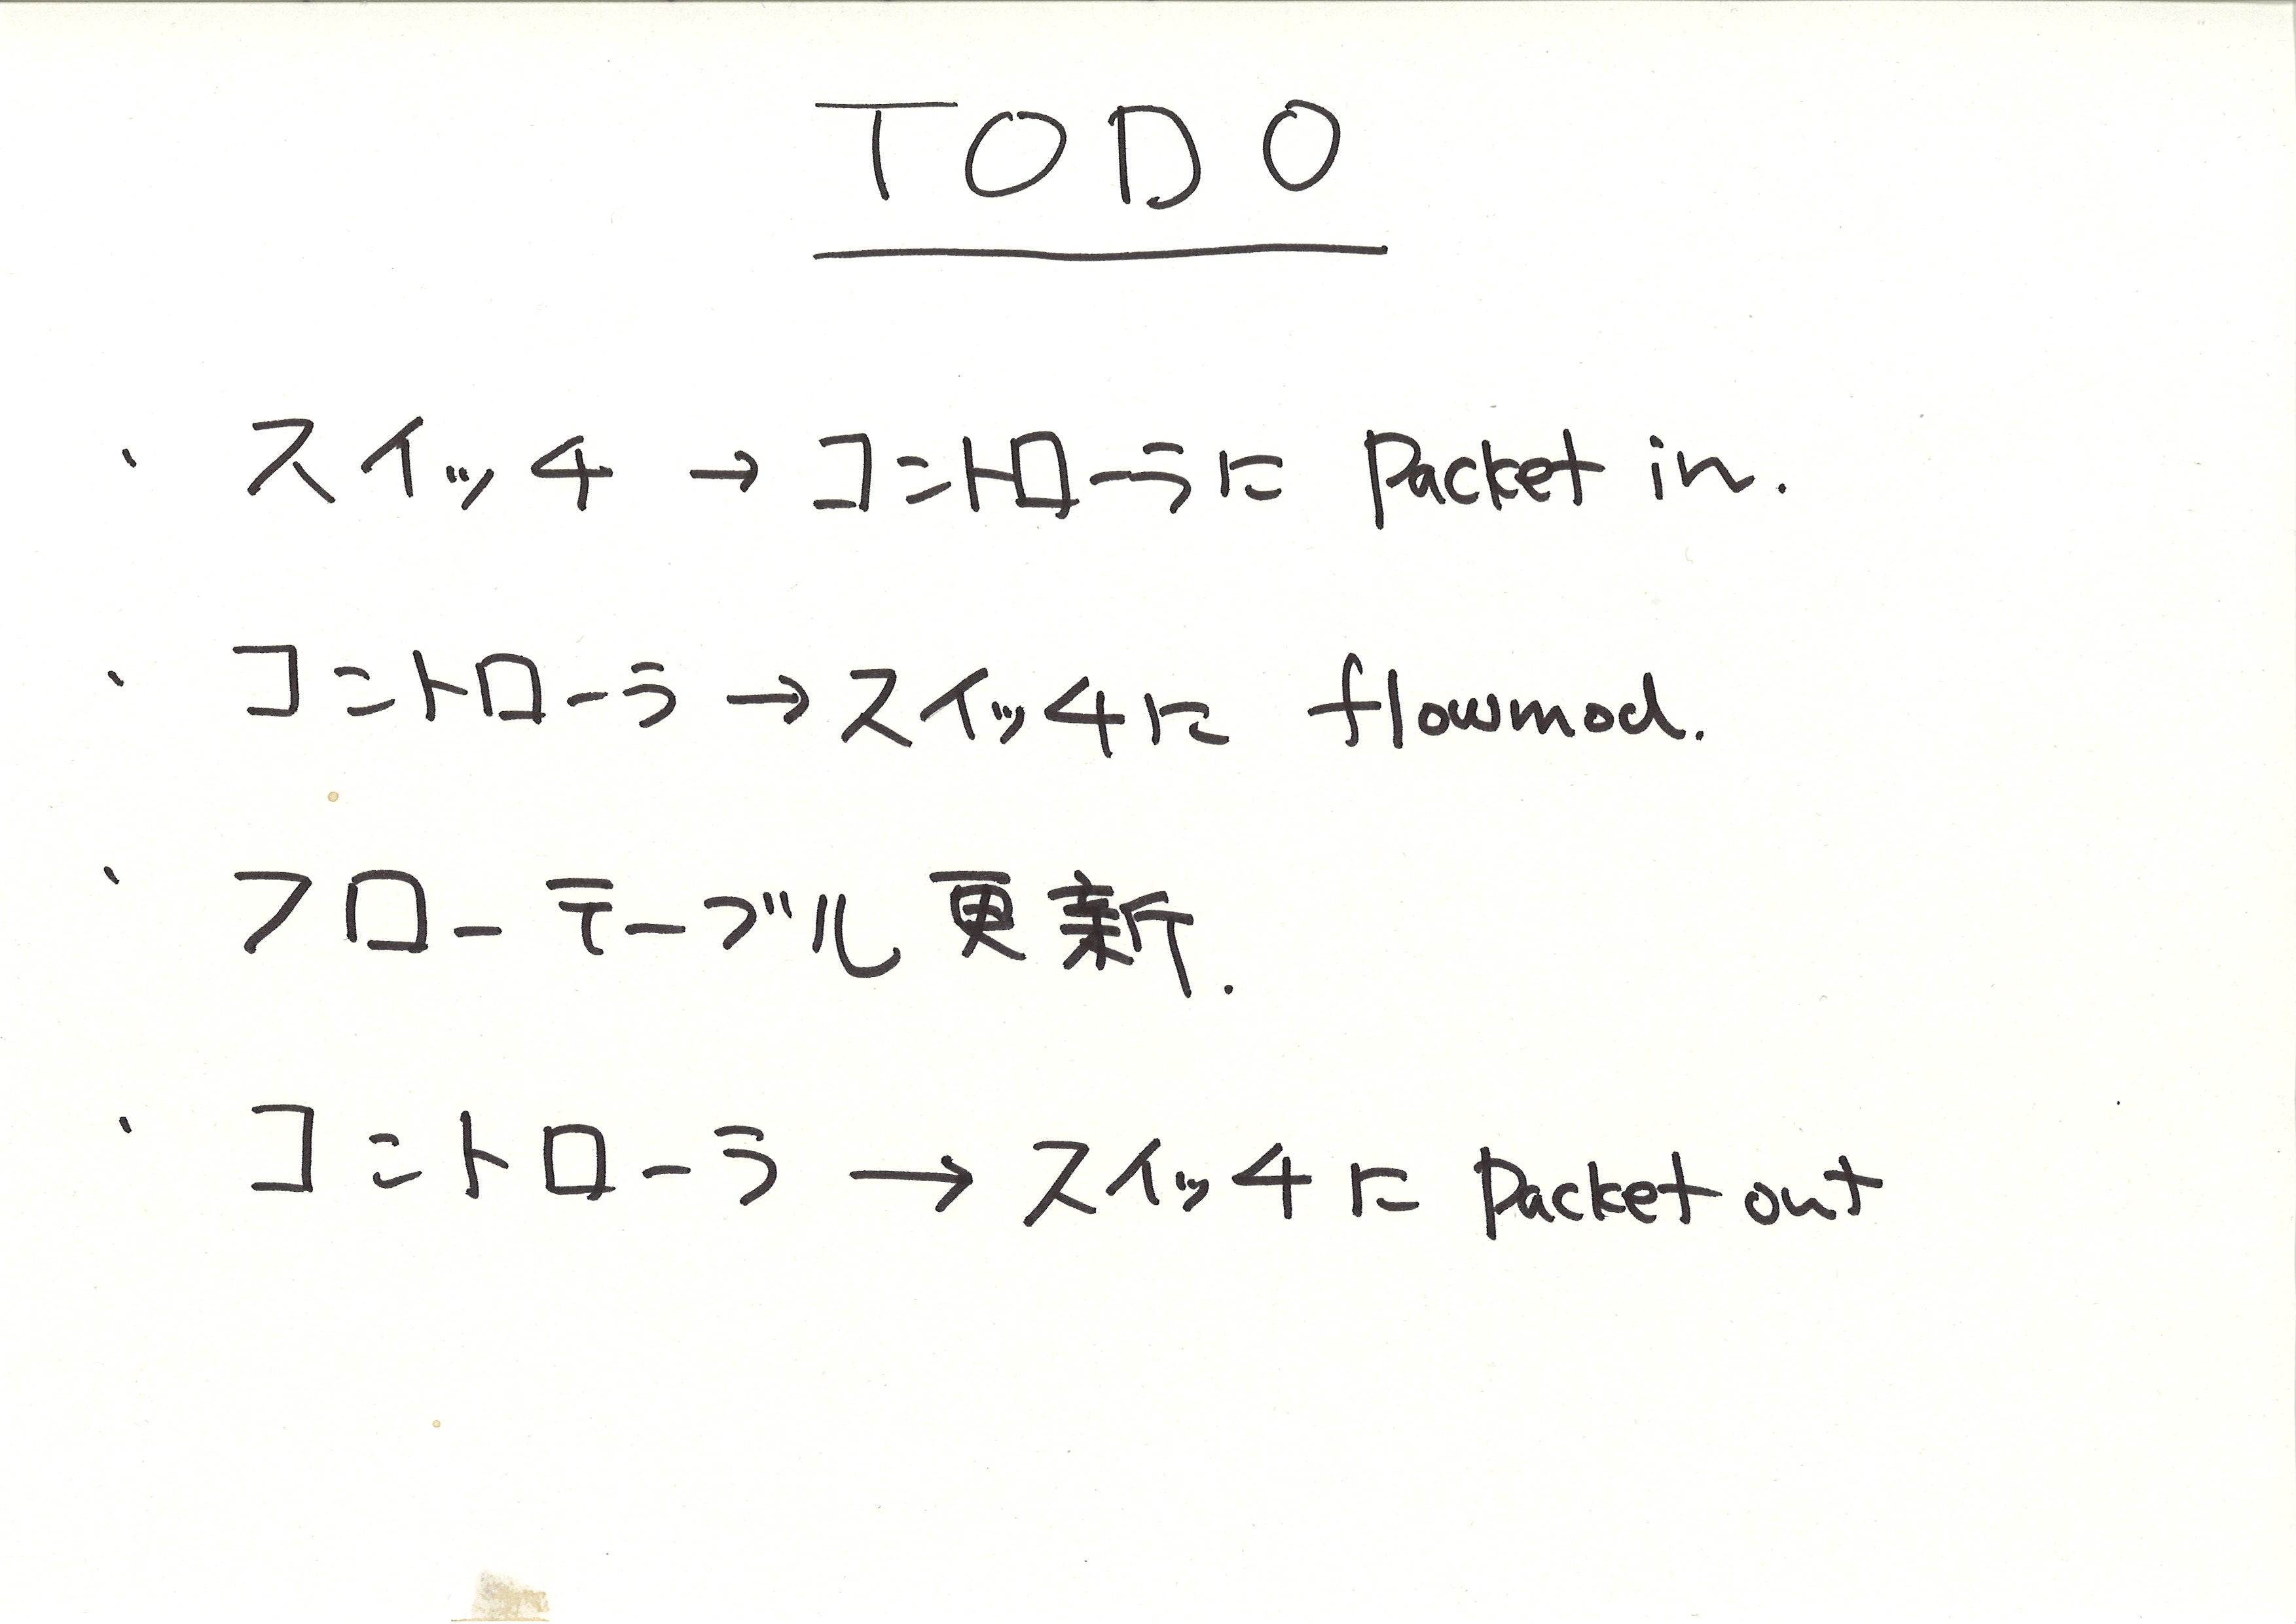 TODO
・ スイッチ → コントローラに Packet in.
・ コントローラ → スイッチに flowmod.
・ フローテーブル更新.
・ コントローラ → スイッチに Packet out